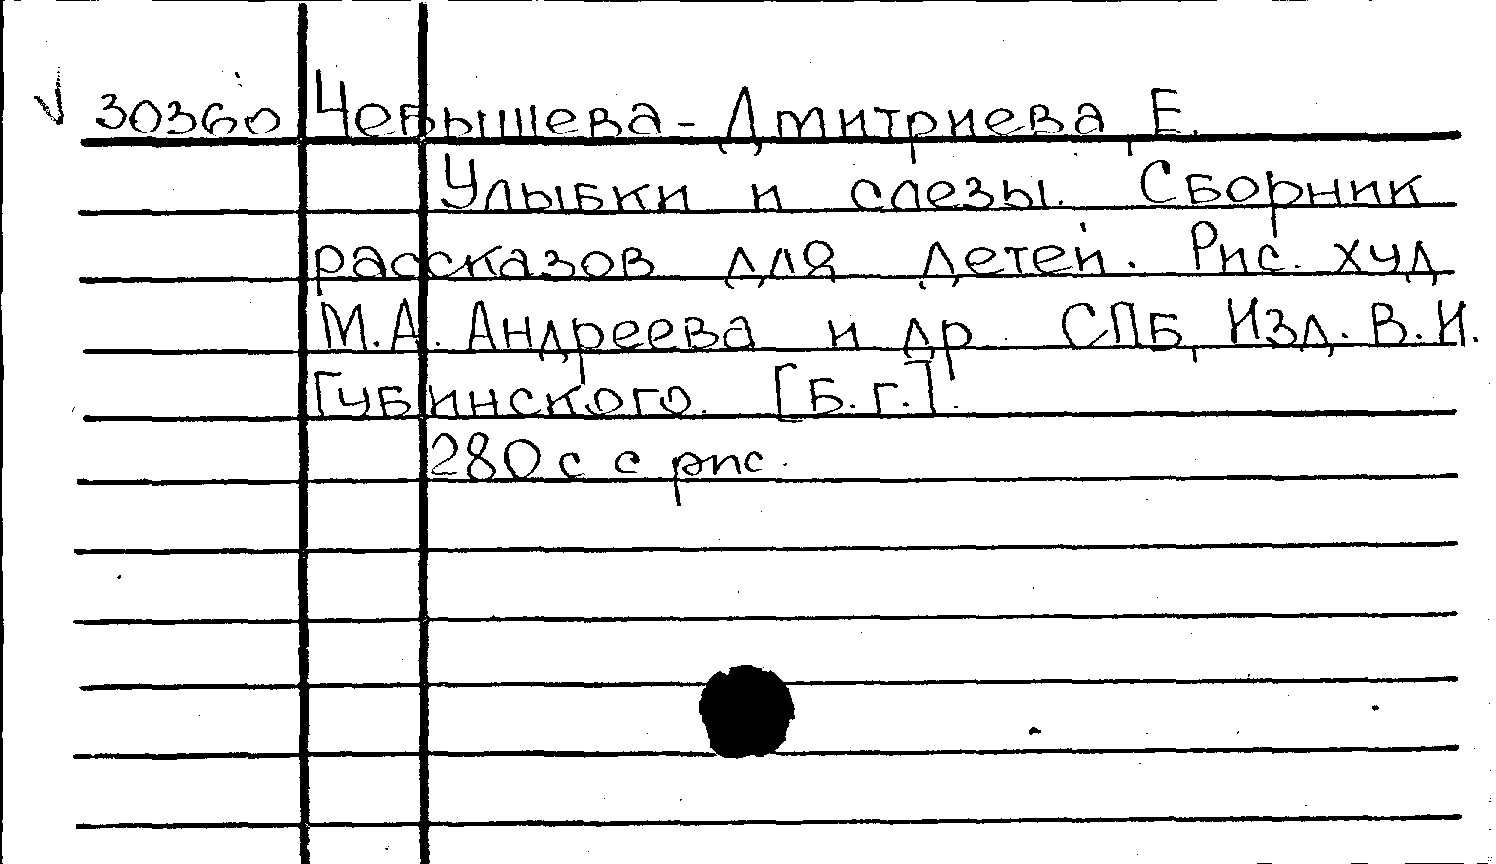 √ 30360 Чебышева-Дмитриева, Е.
Улыбки и слезы. Сборник
рассказов для детей. Рис. худ
М.А. Андреева и др. СПБ, Изд. В.И.
Губинского. [Б.г.].
280 с с рис.